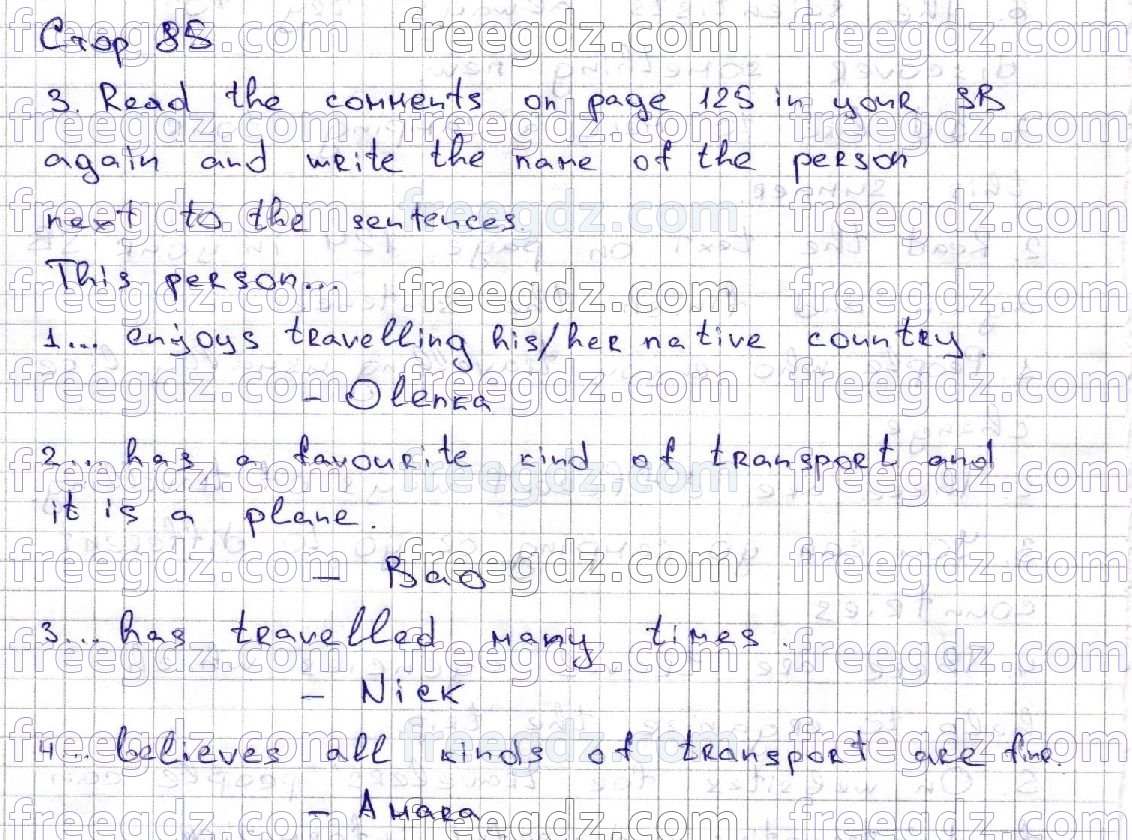 Стор 85
3. Read the comments on page 125 in your SB
again and write the name of the person
next to the sentences.
This person...
1... enjoys travelling his/her native country.
- Olenka
2... has a favourite kind of transport and
it is a plane.
- Bao
3... has travelled many times.
- Nick
4... believes all kinds of transport are fine.
- Amara
freegdz.com